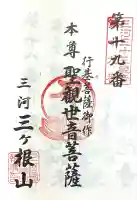 第十九番
行基菩薩御作
本尊聖觀世音菩薩
三河三ヶ根山